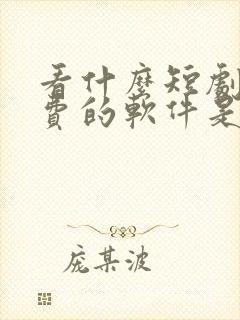 看什麼短劇
費的軟件是
庞某波